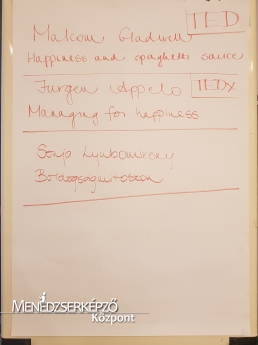 TED
Malcom Gladwell
Happiness and spaghetti sauce
Jurgen Appelo TEDx
Managing for happiness
Sonja Lyubomirsky
MENEDZSERKÉPZŐ
Központ